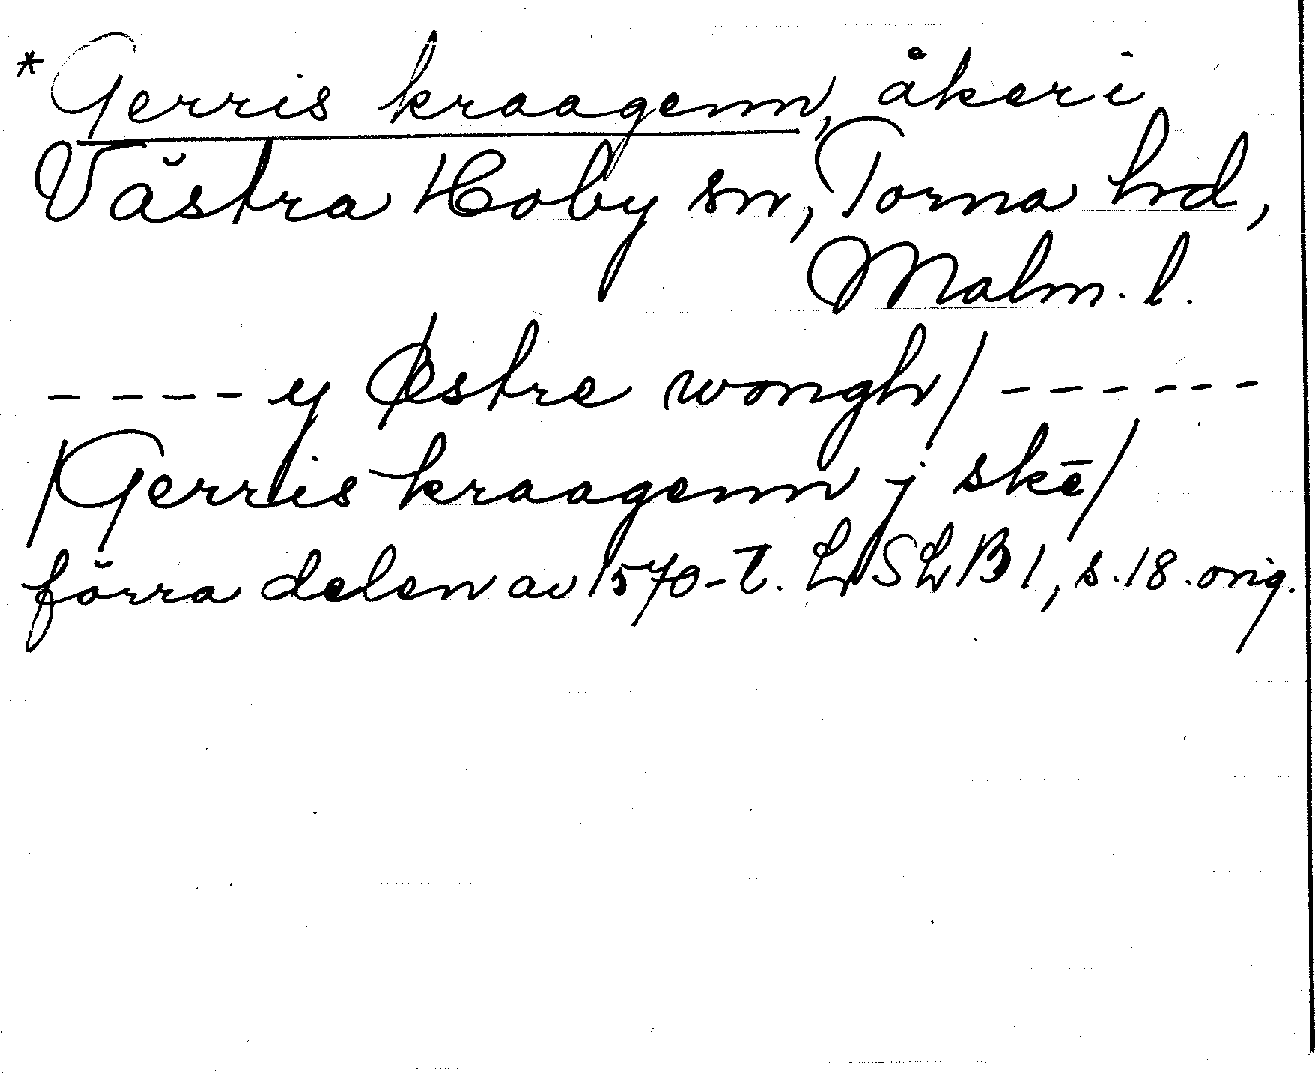 * Gerris kraagenn, åker i
Västra Hoby sn, Torna hd,
Malm. l.
- - - - - y Østre wongh/ - - - - - -
/Gerris kraagenn j skē/
förra delen av 1570-t. LSLB1, s. 18. orig.